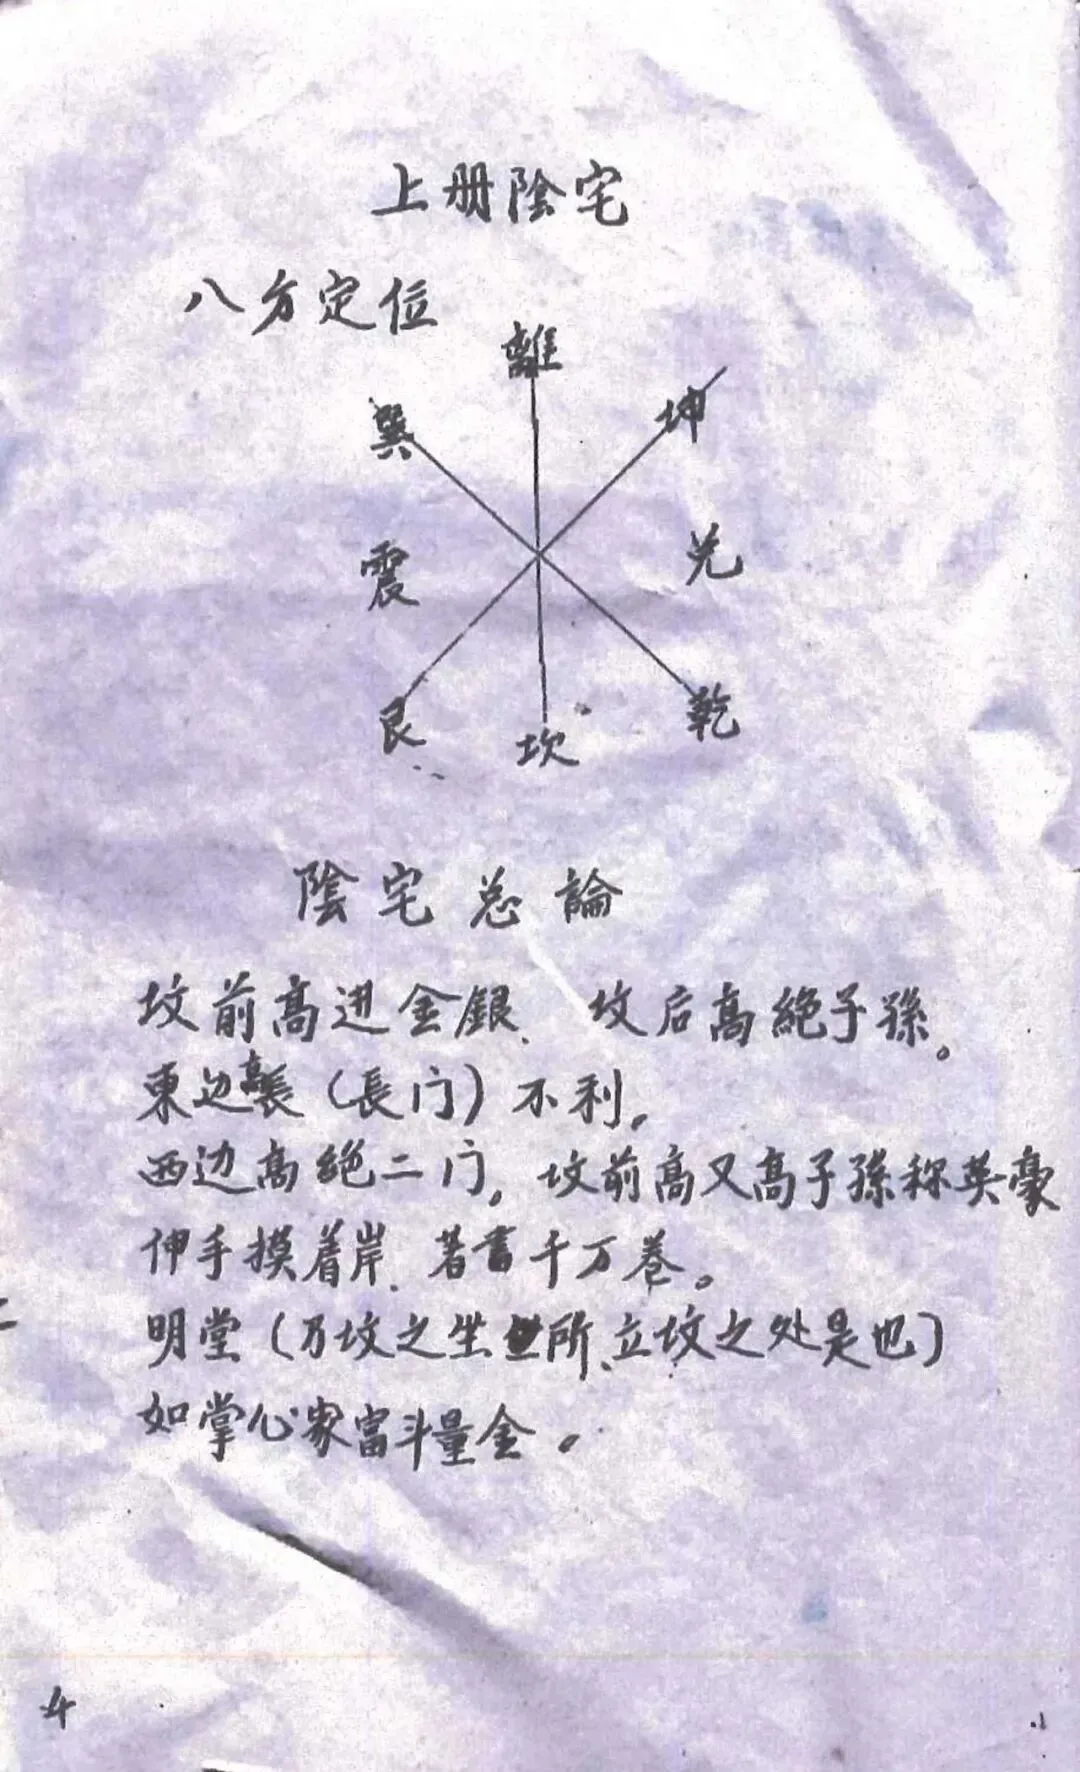 上册陰宅
八方定位
離
巽 坤
震 兑
艮 坎 乾
陰宅总論
坟前高进金銀、坟后高絶子孫。
東边長（長门）不利，
西边高絶二门，坟前高又高子孫称英豪
伸手摸着岸、著書千万卷。
明堂（乃坟之坐所、立坟之处是也）
如掌心家富斗量金。